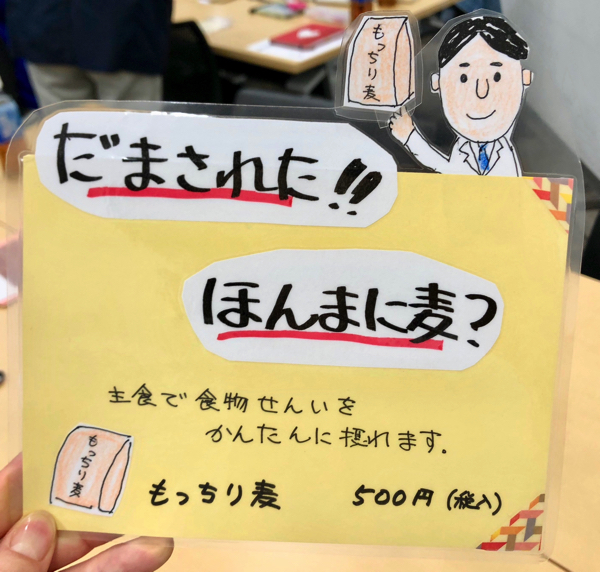 もっちり麦
だまされた!!
ほんまに麦?
主食で食物せんいを
かんたんに摂れます。
もっちり麦
もっちり麦 500円(税入)